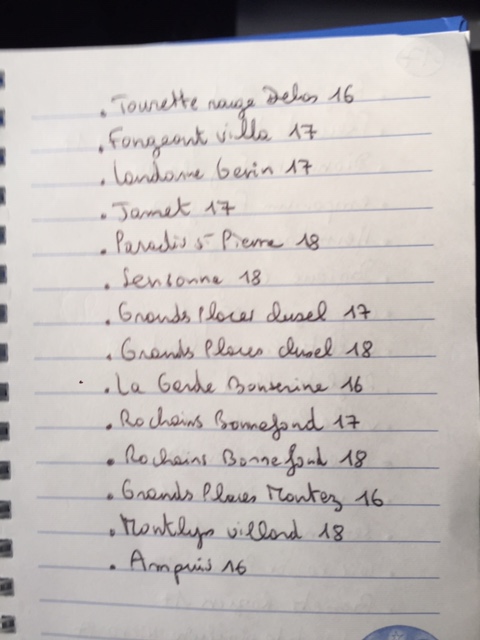 . Tourette rouge Delas 16
. Fongeant villa 17
. Landonne Gerin 17
. Jamet 17
. Paradis st Pierre 18
. Sensonne 18
. Grands Places clusel 17
. Grands Places clusel 18
. La Garde Bonserine 16
. Rochains Bonnefond 17
. Rochains Bonnefond 18
. Grands Places Montez 16
. Montlys villard 18
. Ampuis 16